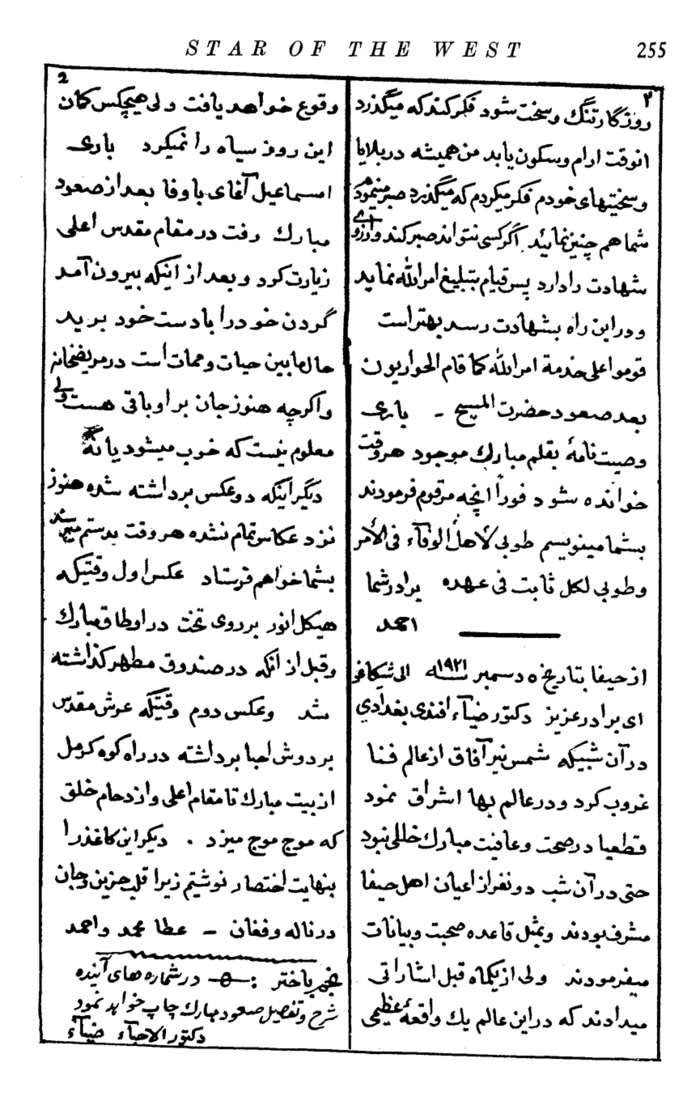 STAR OF THE WEST 255
روزگار تنگ وسخت شود فکر کند که میگذرد
انوقت ارام وسکون یابد من همیشه در بلایا
وسختیهای خودم فکر میکردم که میگذرد صبر مینمودم
شما هم چنین نمائید اگر کسی نتواند صبر کند وآرزوی
شهادت را دارد پس قیام بتبلیغ امرالله نماید
ودر این راه بشهادت رسد بهتر است
قوموا علی خدمة امرالله کما قام الحواریون
بعد صعود حضرت المسیح - باری
وصیت نامهٔ بقلم مبارک موجود هر وقت
خوانده شود فوراً آنچه مرقوم فرمودند
بشما مینویسم طوبی لأهل الوفآء فی الأمر
وطوبی لکل ثابت فی عهده برادر شما
احمد
از حیفا بتاریخ ٥ دسمبر سنه ١٩٢١ الی شیکاغو
ای برادر عزیز دکتور ضیآء افندی بغدادی
در آن شبیکه شمس نیر آفاق از عالم فنا
غروب کرد ودر عالم بها اشراق نمود
قطعیا در صحت وعافیت مبارک خللی نبود
حتی در آن شب دو نفر از اعیان اهل حیفا
مشرف بودند وبمثل قاعده صحبت وبیانات
میفرمودند ولی از یکماه قبل اشاراتی
میدادند که در این عالم یک واقعهٔ عظیمی
2
وقوع خواهد یافت ولی هیچکس گمان
این روز سیاه را نمیکرد باری
اسماعیل آقای با وفا بعد از صعود
مبارک رفت در مقام مقدس اعلی
زیارت کرد وبعد از اینکه بیرون آمد
گردن خود را با دست خود برید
حالا مابین حیات وممات است در مریضخانه
واگرچه هنوز جان بر او باقی هست ولی
معلوم نیست که خوب میشود یا نه
دیگر اینکه دو عکس برداشته شده هنوز
نزد عکاس تمام نشده هر وقت بدستم میرسد
بشما خواهم فرستاد عکس اول وقتیکه
هیکل انور بر روی تخت در اوطاق مبارک
وقبل از آنکه در صندوق مطهر گذاشته
شد وعکس دوم وقتیکه عرش مقدس
بر دوش احبا برداشته در راه کوه کرمل
از بیت مبارک تا مقام اعلی وازدحام خلق
که موج موج میزد . دیگر این کاغذ را
بنهایت اختصار نوشتیم زیرا قلب حزین وجان
در ناله وفغان - عطا محمد واحمد
نجم باختر :- در شماره های آینده
شرح وتفصیل صعود مبارک چاپ خواهد نمود
دکتور الاحبآء ضیآء